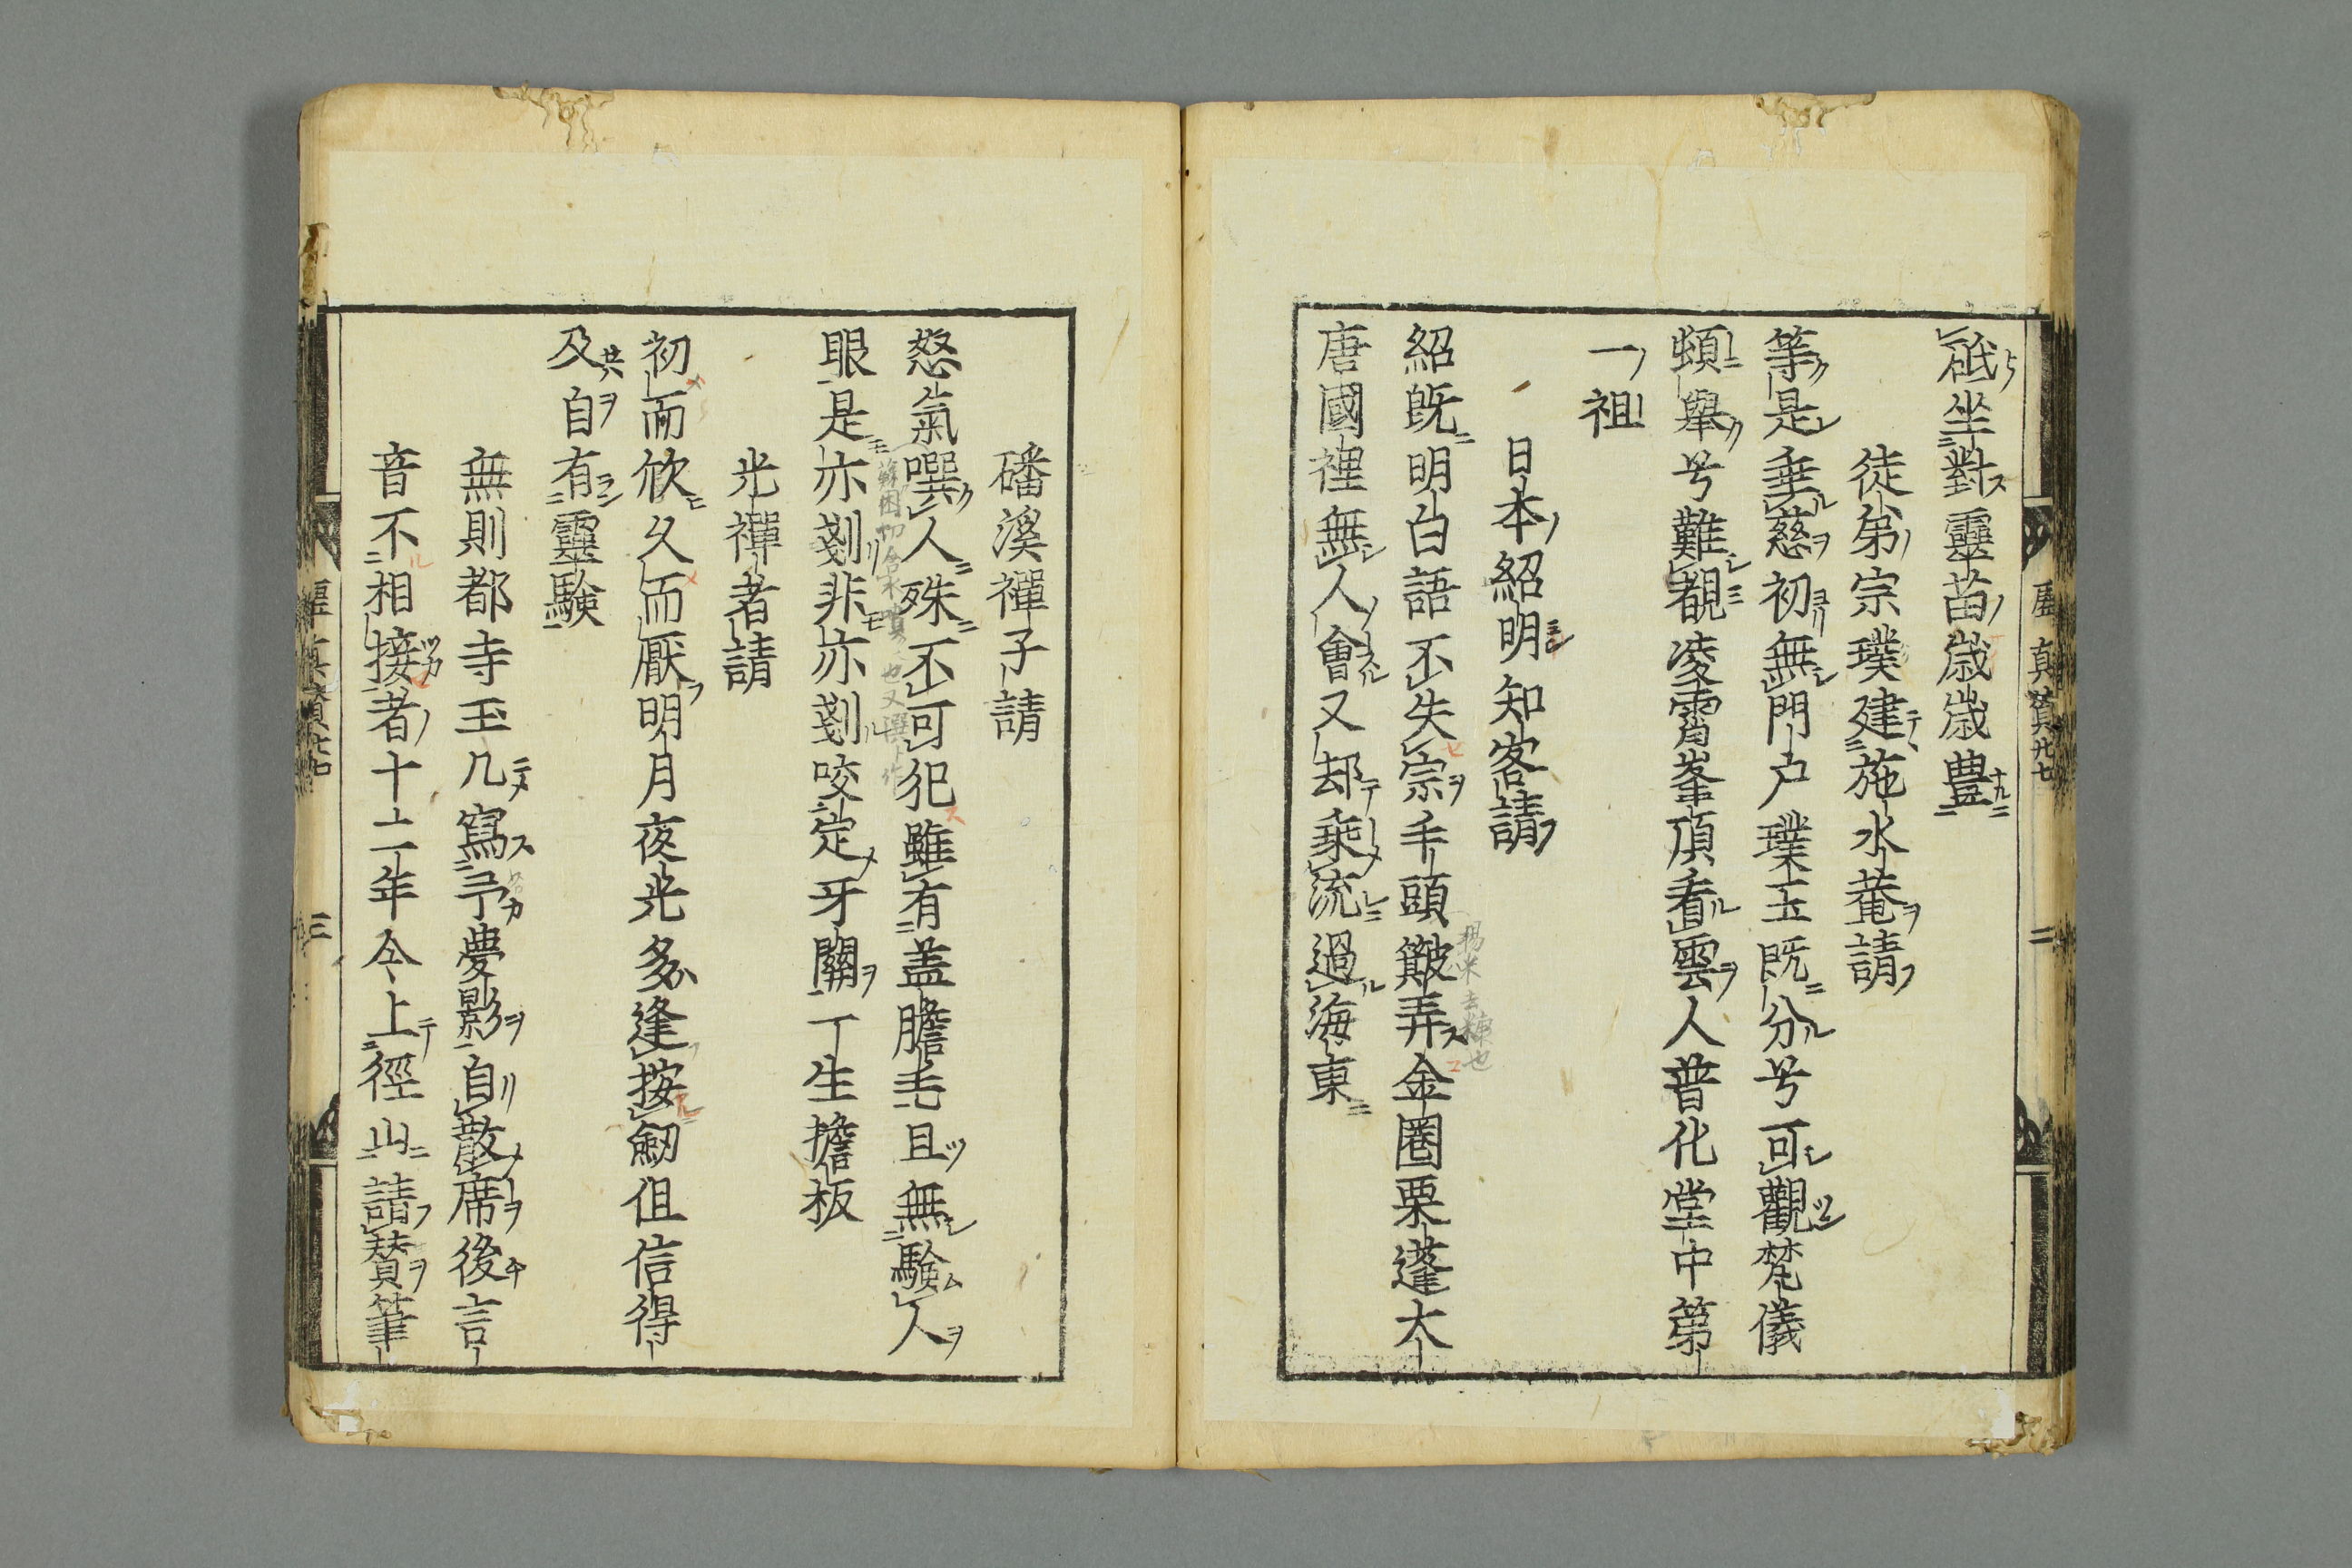 砥坐對靈苗歳歳豊
徒弟宗璞建施水菴請
等是垂慈初無門户璞玉既分号可觀梵儀
頻舉号難覩凌霄峯頂看雲人普化堂中第
一祖
日本紹明知客請
紹既明白語不失宗手頭簸弄金圏栗蓬大
唐國裡無人會又却乘流過海東
磻溪禪子請
怒氣噀人殊不可犯雖有盖膽毛且無驗人
眼是亦剗非亦剗咬定牙關一生擔板
光禪者請
初而欣久而厭明月夜光多逢按劒但信得
及自有靈驗
無則都寺玉几寫予夢影自散席後言
音不相接者十二年今上徑山請賛筆